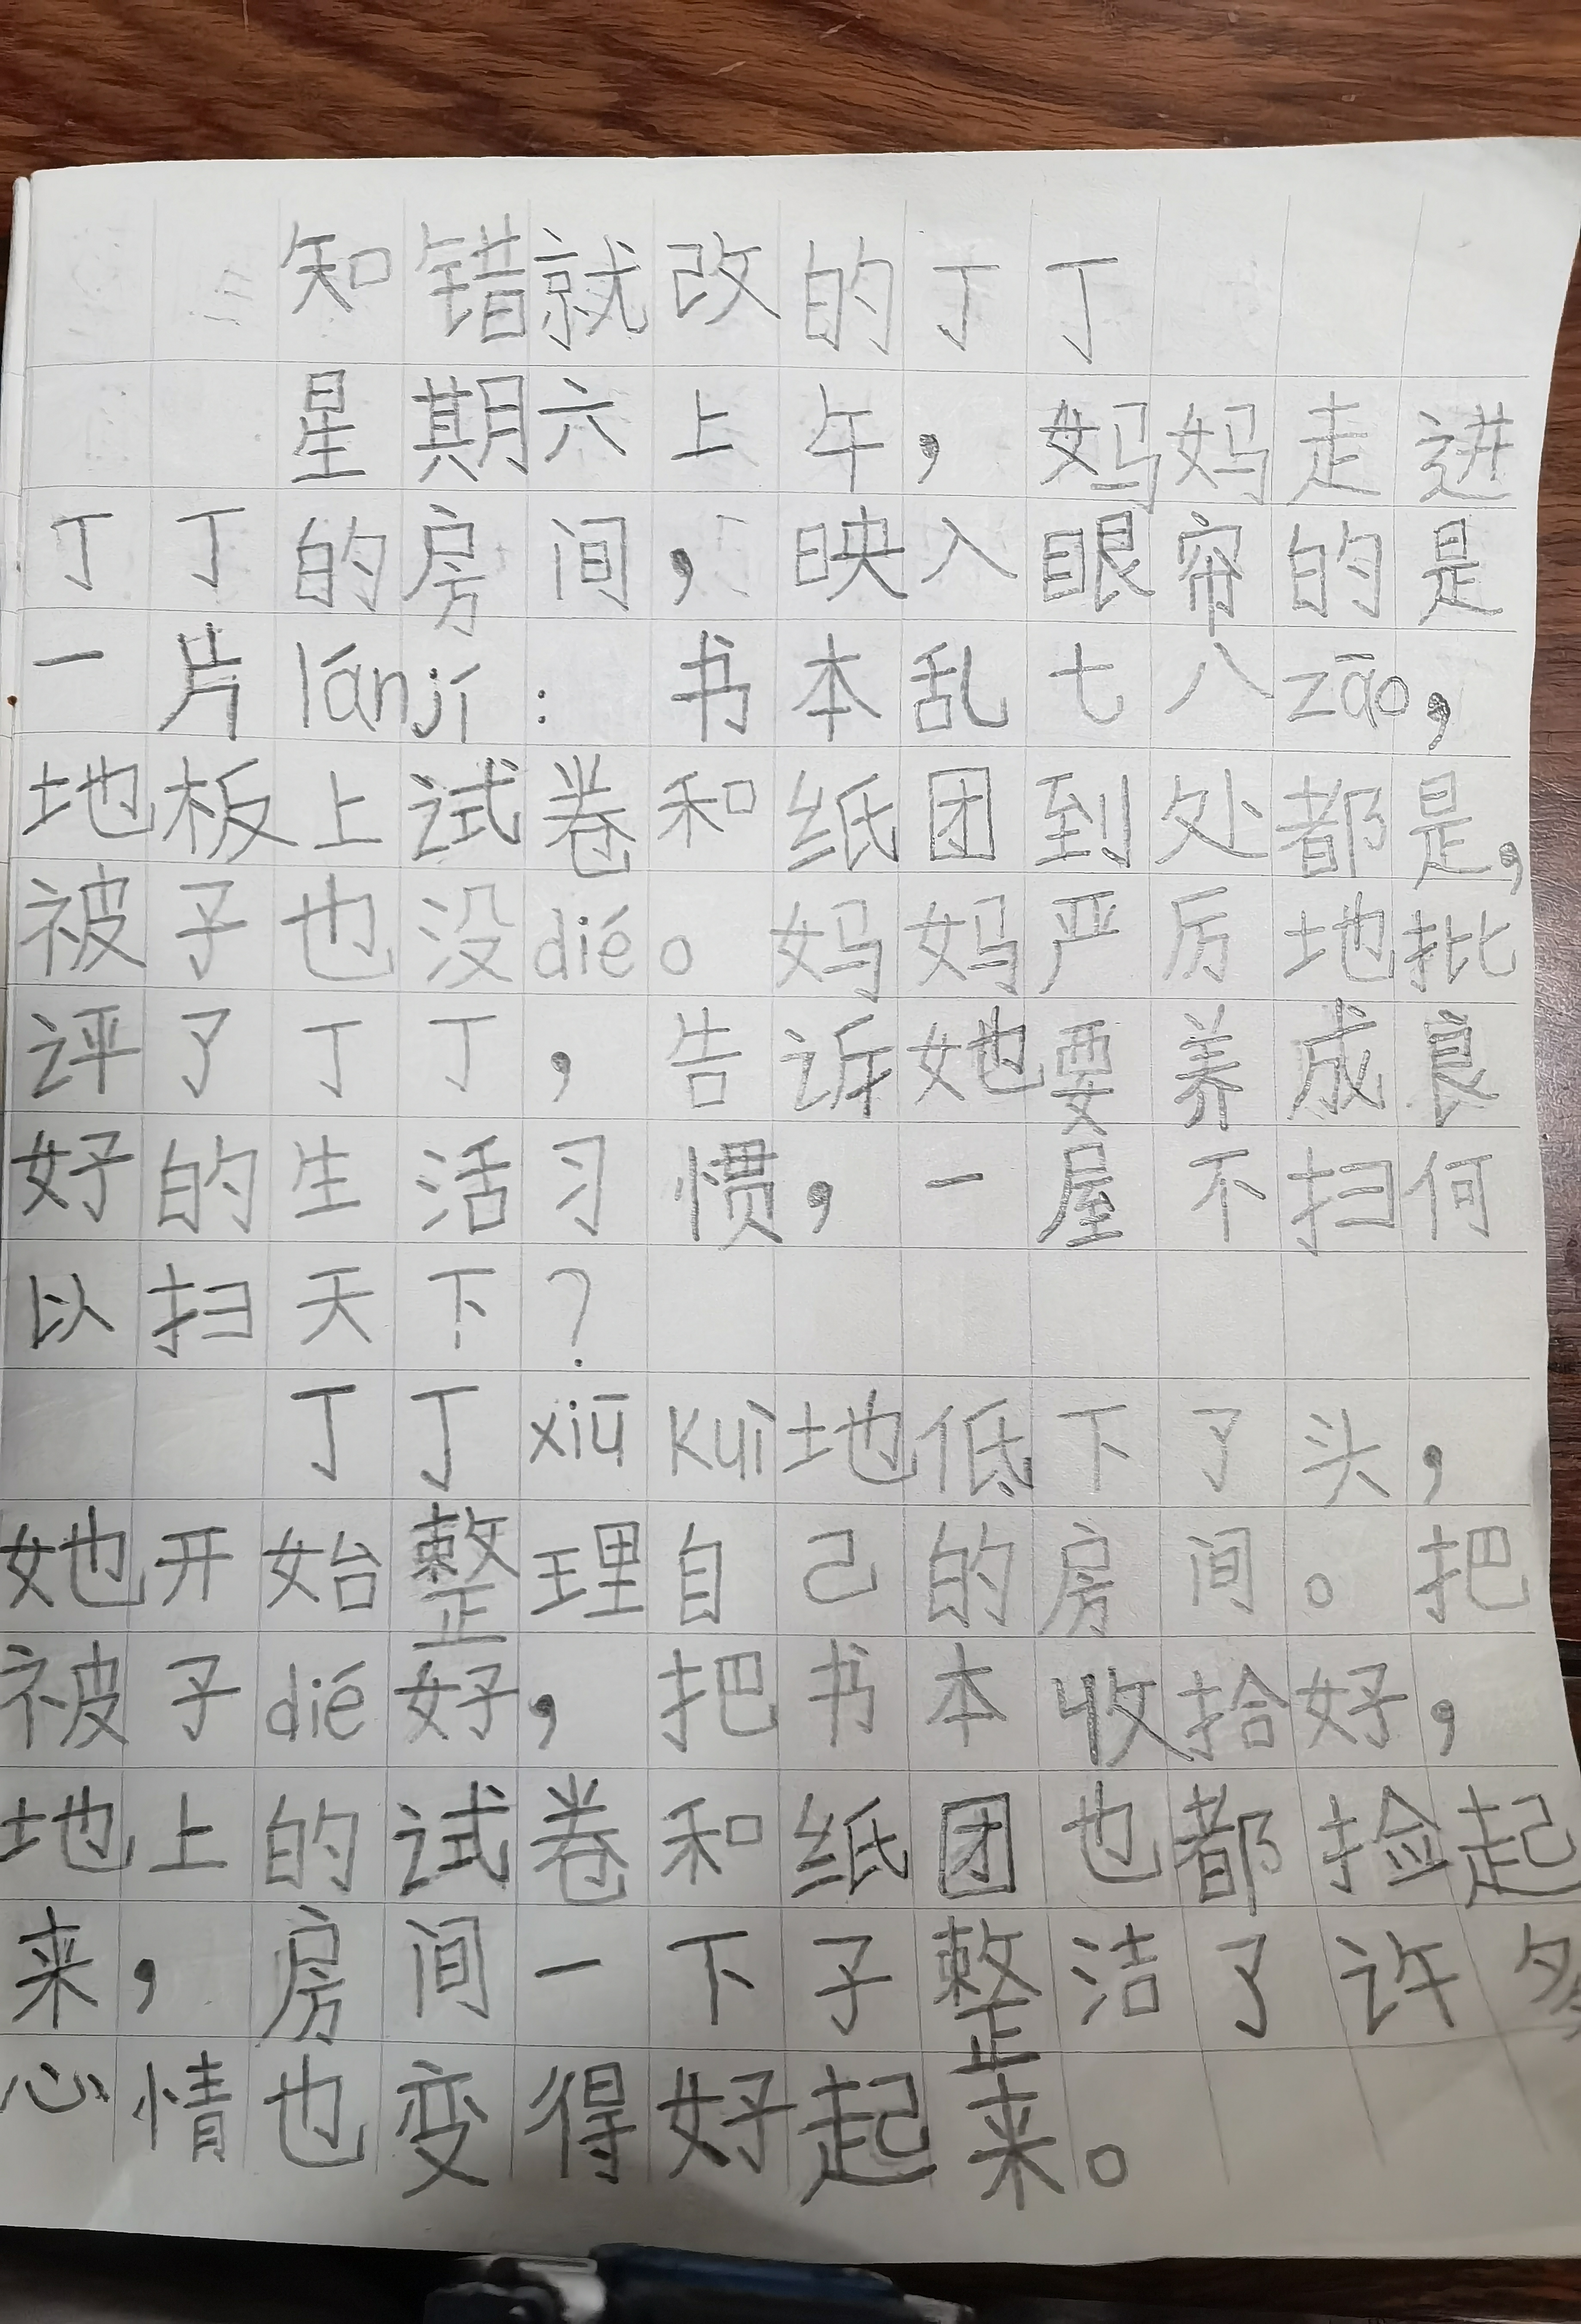 知错就改的丁丁
星期六上午，妈妈走进
丁丁的房间，映入眼帘的是
一片lánjí：书本乱七八zāo，
地板上试卷和纸团到处都是，
被子也没dié。妈妈严厉地批
评了丁丁，告诉她要养成良
好的生活习惯，一屋不扫何
以扫天下？
丁丁xiū kuì地低下了头，
她开始整理自己的房间。把
被子dié好，把书本收拾好，
地上的试卷和纸团也都捡起
来，房间一下子整洁了许多
心情也变得好起来。